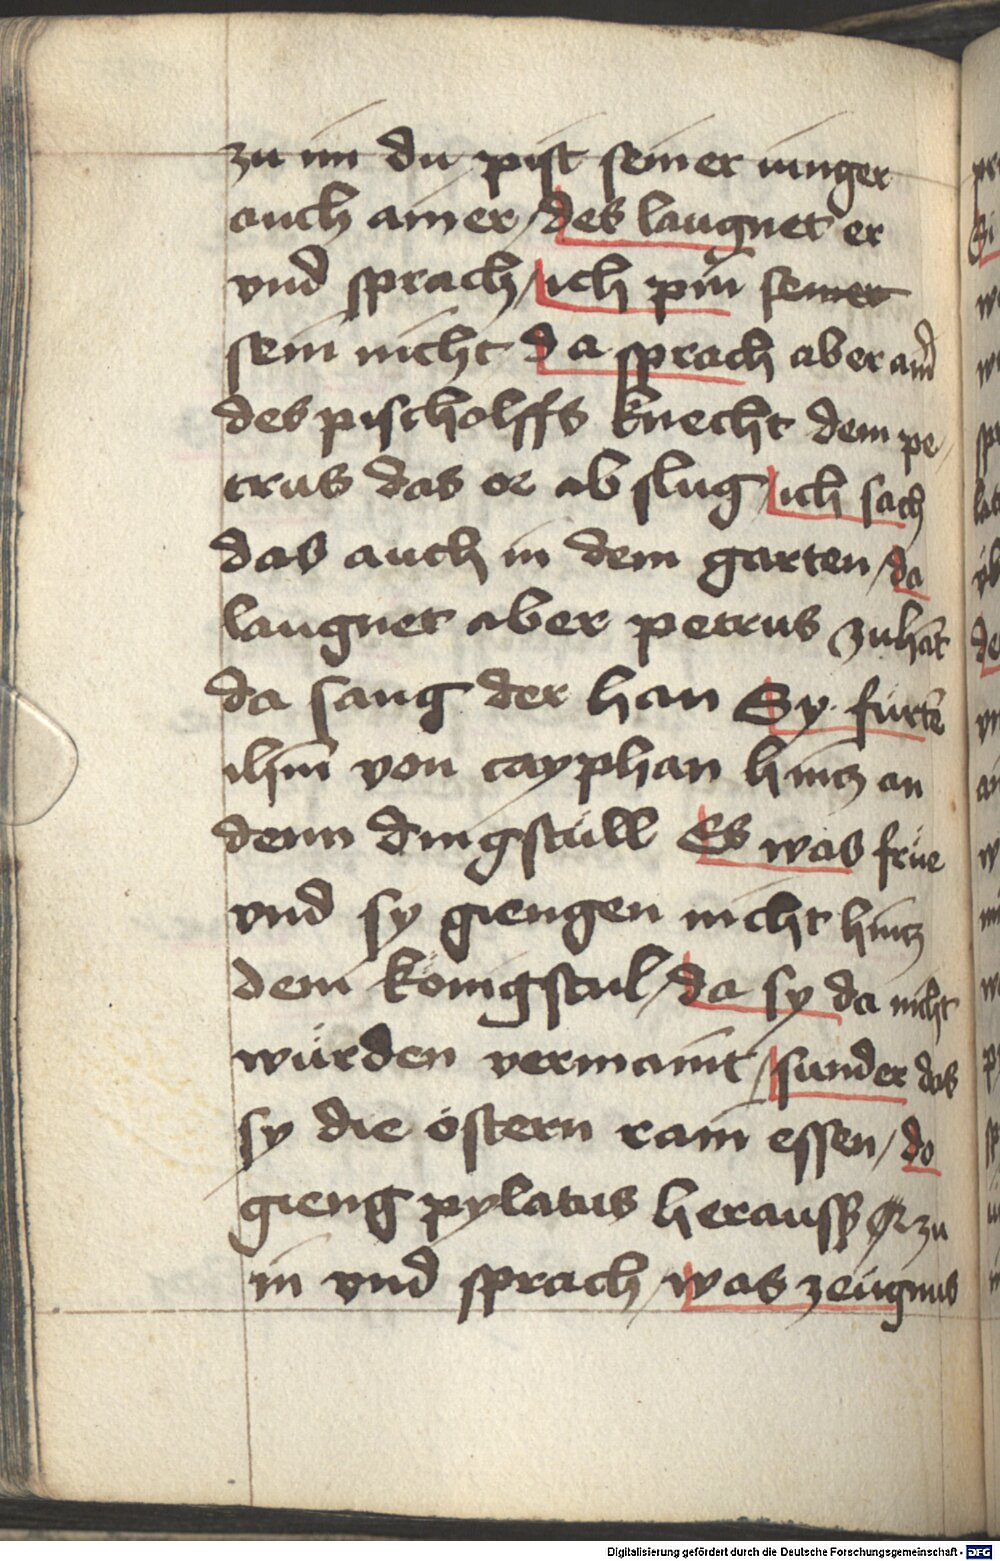 zu im du pist seiner iunger
auch ainer / des laugnet er
vnd sprach / ich pin seiner
sein nicht da sprach aber ainē
des pischolffs knecht dem pe
trus das or ab slug / ich sach
das auch in dem garten / da
laugnet aber petrus zuhāt
da sang der han Sy furtē
ihm̄ von cayphan hincz an
denn dingstüll Es was früe
vnd sy giengen nicht hincz
dem königstul / da sy da nicht
würden vermaint / sunder das
sy die östern rain essen / do
gieng pylatus heraussz zu
in vnd sprach / was zeügnus
Digitalisierung gefördert durch die Deutsche Forschungsgemeinschaft - DFG